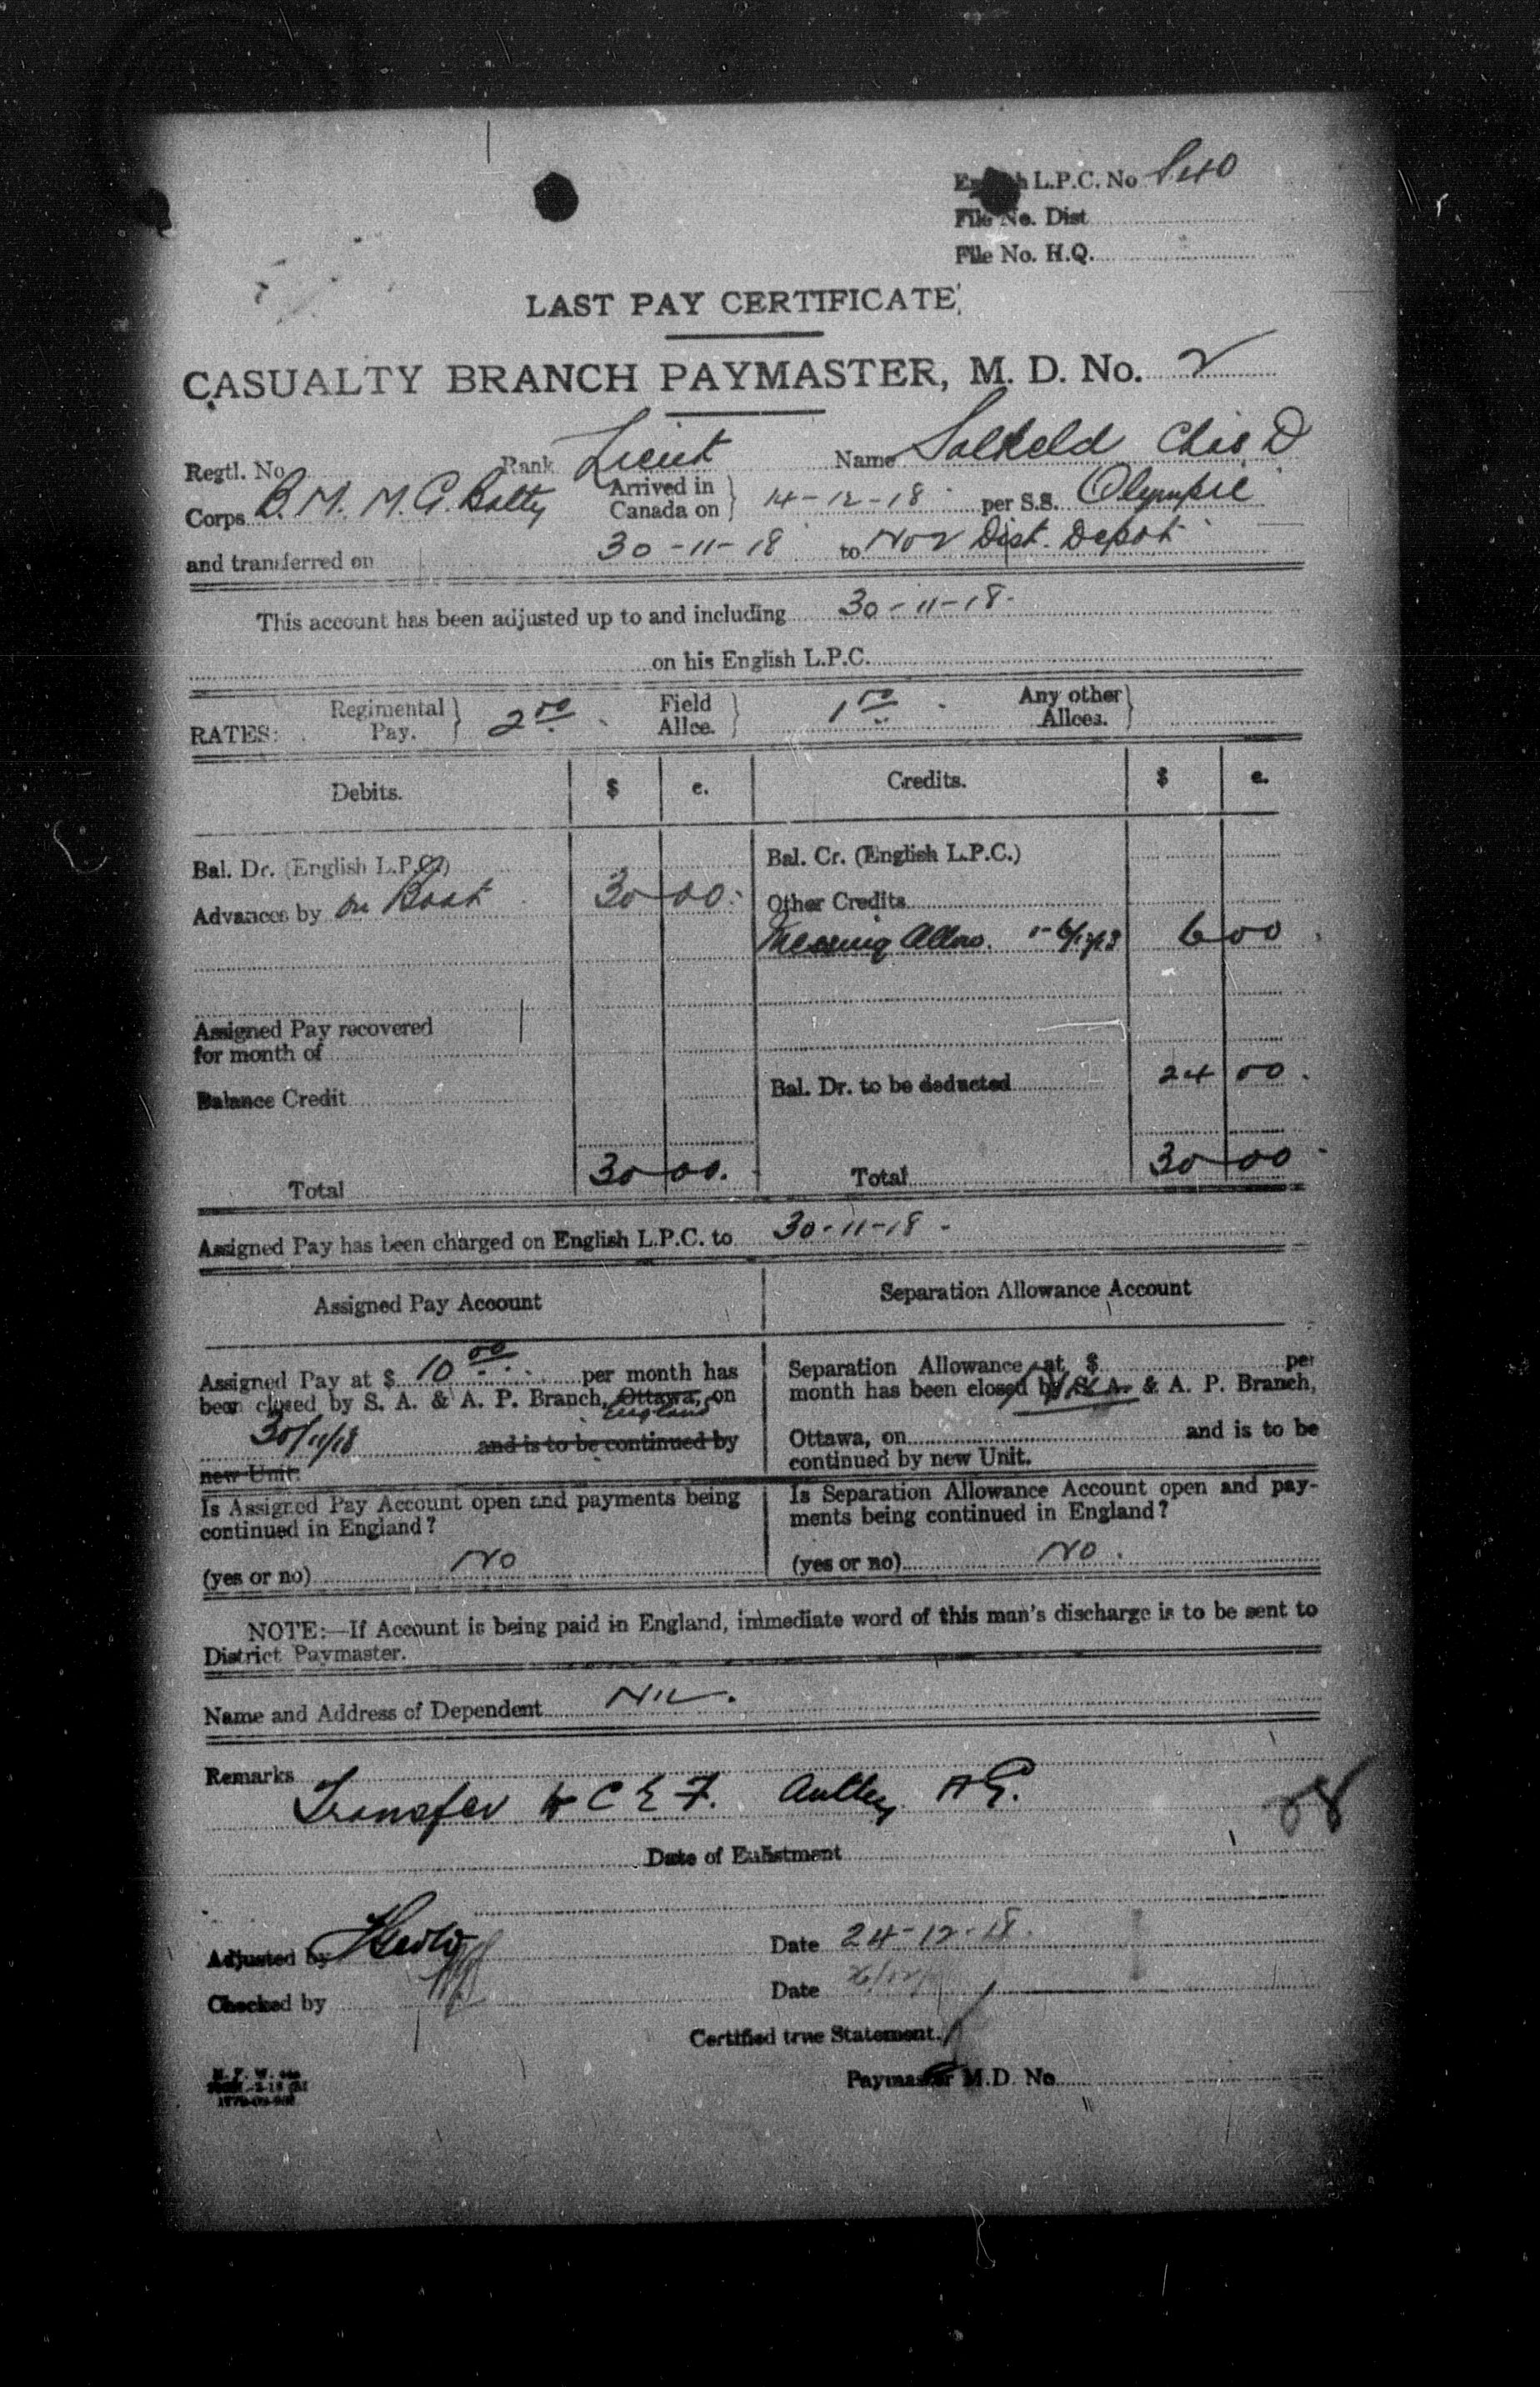 English L.P.C. No 840
File No. Dist
File No. H.Q.
LAST PAY CERTIFICATE
CASUALTY BRANCH PAYMASTER, M. D. No. 2
Regtl. No. Rank Lieut Name Salkeld Chas D
Corps B. M. M. G. Battty Arrived in Canada on } 14-12-18 per S.S. Olympic
and transferred on 30-11-18 to No 2 Dist. Depot
This account has been adjusted up to and including 30-11-18-
on his English L.P.C.
RATES: Regimental Pay. } 2 00 Field Allce. } 1 00 Any other Allces. }
Debits. $ c. Credits. $ c.
Bal. Dr. (English L.P.C.) Bal. Cr. (English L.P.C.)
Advances by on Boat 30 00 Other Credits
Messing Allow. 6 00
Assigned Pay recovered
for month of
Balance Credit Bal. Dr. to be deducted 24 00
Total 30 00. Total 30 00
Assigned Pay has been charged on English L.P.C. to 30-11-18-
Assigned Pay Account Separation Allowance Account
Assigned Pay at $ 10 00 per month has
been closed by S. A. & A. P. Branch, Ottawa, on
England
30/11/18 and is to be continued by
new Unit.
Separation Allowance at $ per
month has been closed by S. A. & A. P. Branch,
Ottawa, on and is to be
continued by new Unit.
Is Assigned Pay Account open and payments being
continued in England?
(yes or no) No
Is Separation Allowance Account open and pay-
ments being continued in England?
(yes or no) No.
NOTE:—If Account is being paid in England, immediate word of this man's discharge is to be sent to
District Paymaster.
Name and Address of Dependent Nil.
Remarks
Transfer to C E F. Authy A G.
Date of Enlistment
Adjusted by Date 24-12-18.
Checked by Date
Certified true Statement.
Paymaster M.D. No